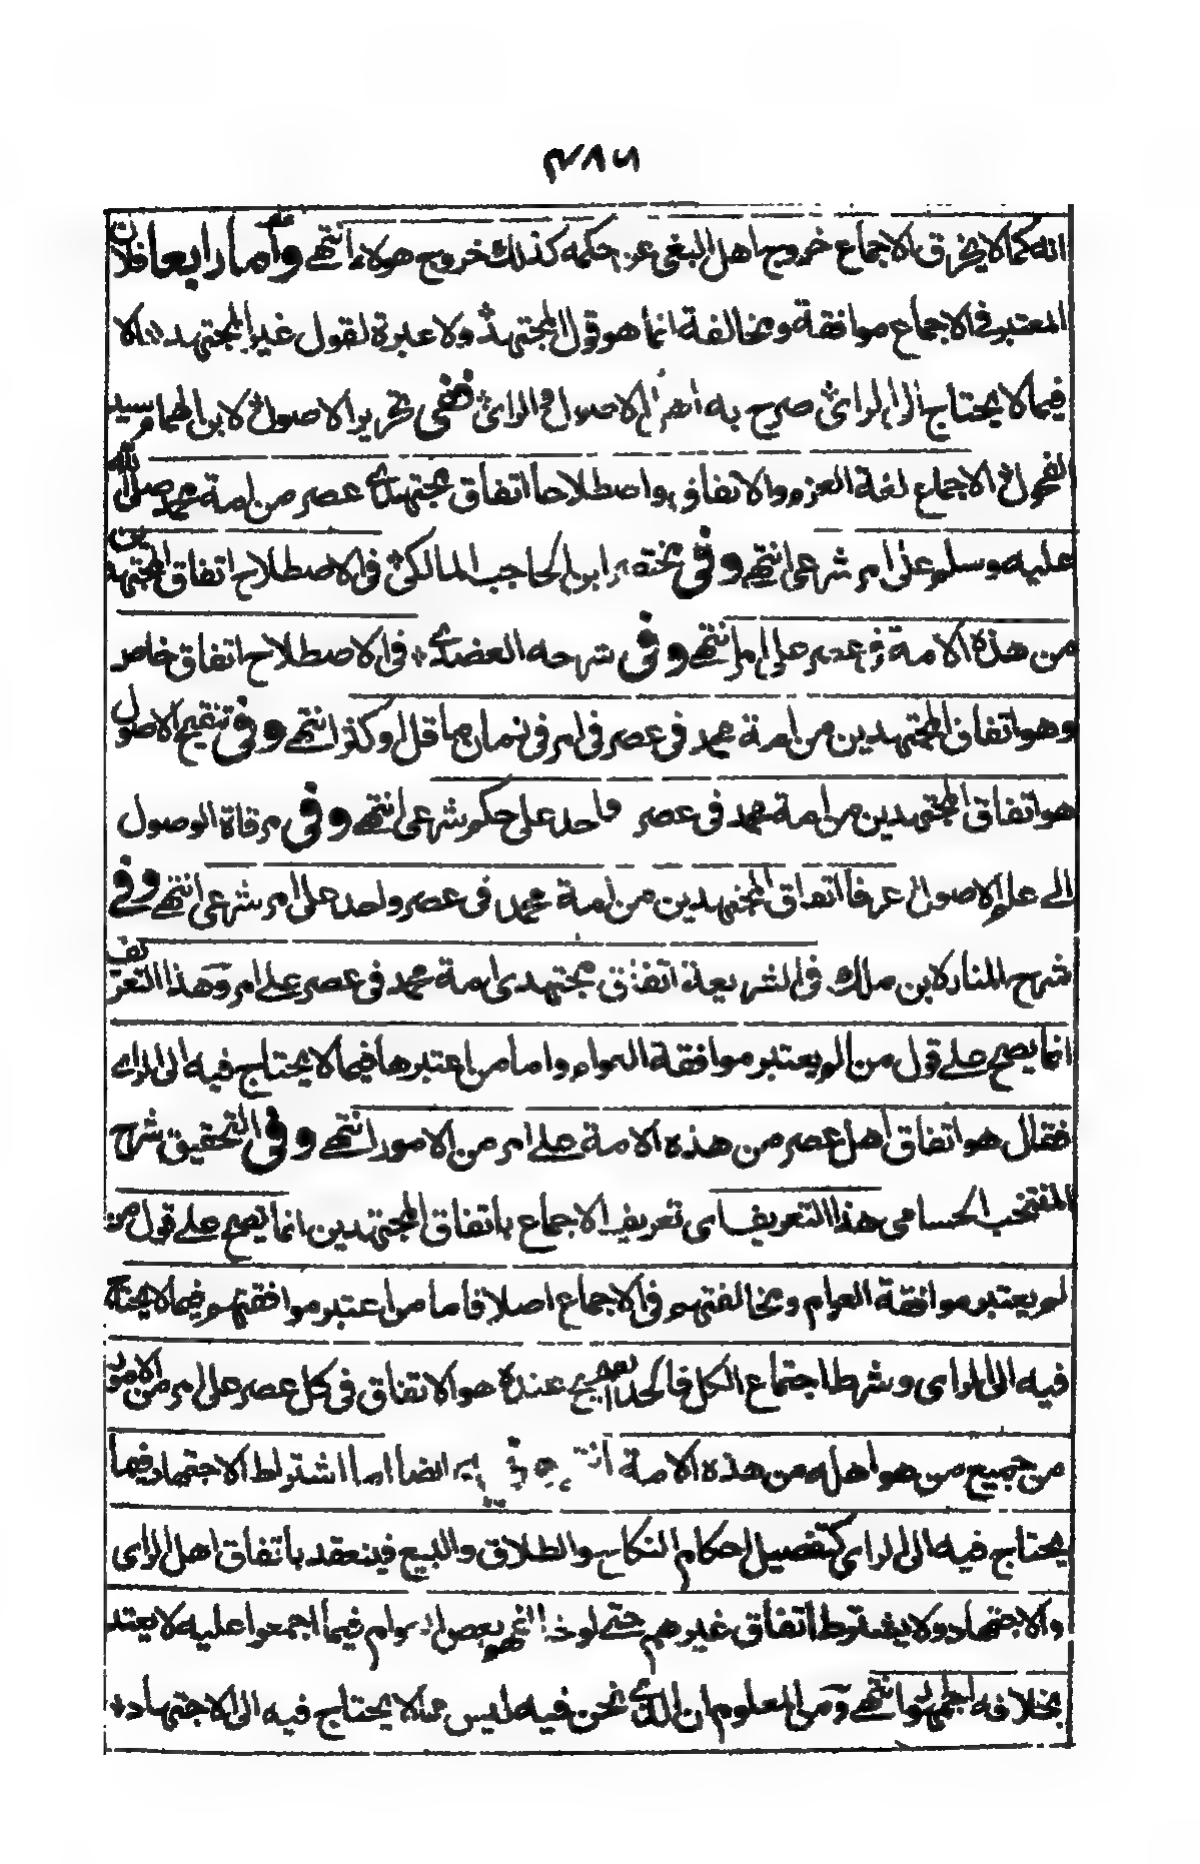 ٣٨٦
انه كما لا يخرق الاجماع خروج اهل البغى عن حكمه كذلك خروج هولاء انتهى وأما رابعا فلان
المعتبر فى الاجماع موافقة ومخالفة انما هو قول المجتهد ولا عبرة لقول غير المجتهد الا
فيما لا يحتاج الى الراى صرح به اهل الاصول والراى ففى تحرير الاصول لابن الهمام سيد
الفحول الاجماع لغة العزم والاتفاق واصطلاحا اتفاق مجتهدى عصر من امة محمد صلى الله
عليه وسلم على امر شرعى انتهى وفى مختصر ابن الحاجب المالكى فى الاصطلاح اتفاق المجتهدين
من هذه الامة فى عصر على امر انتهى وفى شرحه العضدى فى الاصطلاح اتفاق خاص
وهو اتفاق المجتهدين من امة محمد فى عصر فى امر فى زمان ما قل او كثر انتهى وفى تنقيح الاصول
هو اتفاق المجتهدين من امة محمد فى عصر واحد على حكم شرعى انتهى وفى مرقاة الوصول
الى علم الاصول عرفا اتفاق المجتهدين من امة محمد فى عصر واحد على امر شرعى انتهى وفى
شرح المنار لابن ملك فى الشريعة اتفاق مجتهدى امة محمد فى عصر على امر وهذا التعريف
انما يصح على قول من لم يعتبر موافقة العوام واما من اعتبرها فيما لا يحتاج فيه الى الراى
فقال هو اتفاق اهل عصر من هذه الامة على امر من الامور انتهى وفى التحقيق شرح
المنتخب الحسامى هذا التعريف اى تعريف الاجماع باتفاق المجتهدين انما يصح على قول من
لم يعتبر موافقة العوام ومخالفتهم فى الاجماع اصلا فاما من اعتبر موافقتهم فيما لا يحتاج
فيه الى الراى وشرط اجتماع الكل فالحد الصحيح عنده هو الاتفاق فى كل عصر على امر من الامور
من جميع من هو اهله من هذه الامة انتهى وفيه ايضا اما اشتراط الاجتهاد فيما
يحتاج فيه الى الراى كتفصيل احكام النكاح والطلاق والبيع فينعقد باتفاق اهل الراى
والاجتهاد ولا يشترط اتفاق غيرهم حتى لو خالفهم بعض العوام فيما اجمعوا عليه لا يعتد
بخلافه انتهى ومن المعلوم ان الذى نحن فيه ليس مما لا يحتاج فيه الى الاجتهاد